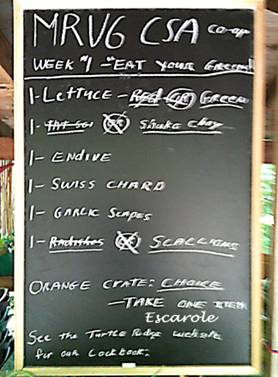 MRVG CSA co-op
WEEK #1 - "EAT YOUR GREENS"
1- LETTUCE - Red OR GREEN
1- OR
1- ENDIVE
1- SWISS CHARD
1- GARLIC SCAPES
1- Radishes OR SCALLIONS
ORANGE CRATE: CHOICE
- TAKE ONE ITEM
Escarole
See the Turtle Ridge website
for our Cookbook.